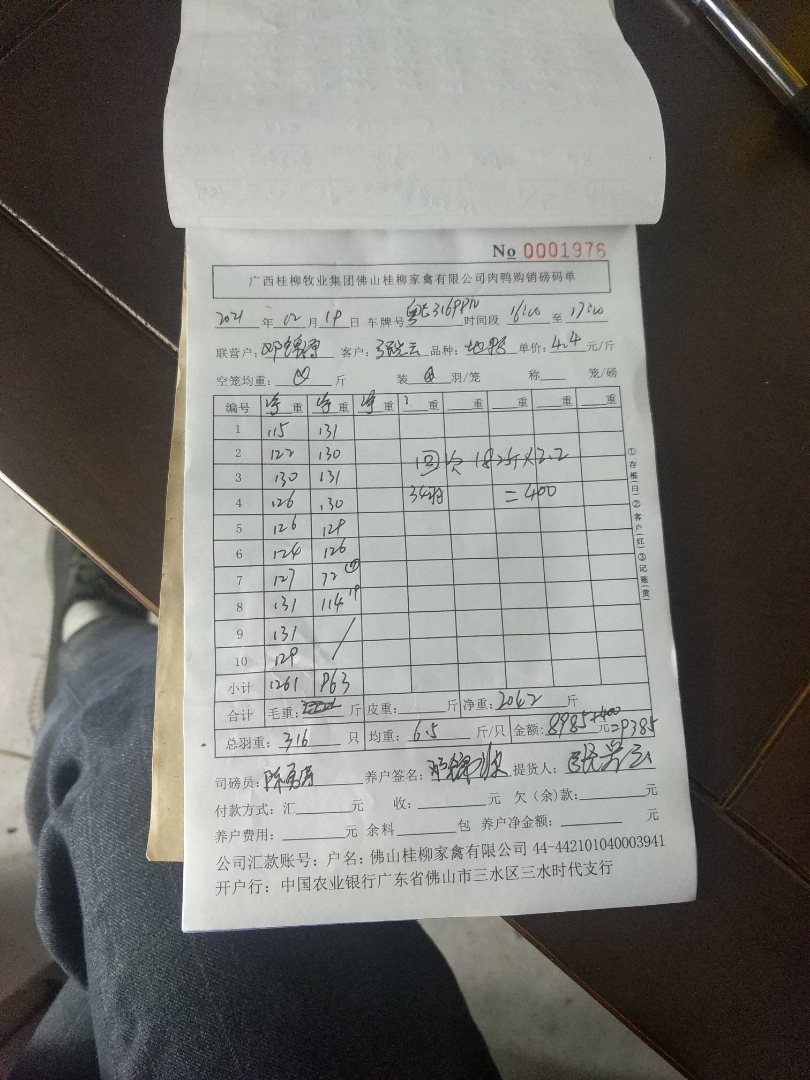 No 0001976
广西桂柳牧业集团佛山桂柳家禽有限公司肉鸭购销磅码单
2021 年 12 月 19 日 车牌号 时间段 16:00 至 17:00
联营户: 客户: 品种: 单价: 4.4 元/斤
空笼均重: 斤 装 羽/笼 称 笼/磅
编号 重 重 重 重 重 重 重 重
1 115 131
2 122 130 回 1825斤×2.2
3 130 131
4 126 130 34 =400
5 126 129
6 124 126
7 127 72
8 131 114 19
9 131 /
10 129
小计 1261 863
合计 毛重: 斤 皮重: 斤 净重: 2042 斤
总羽重: 316 只 均重: 6.5 斤/只 金额: 8985+400元=9385
司磅员: 养户签名: 提货人:
付款方式: 汇 元 收: 元 欠(余)款: 元
养户费用: 元 余料 包 养户净金额: 元
公司汇款账号: 户名: 佛山桂柳家禽有限公司 44-442101040003941
开户行: 中国农业银行广东省佛山市三水区三水时代支行
①存根(白)②客户(红)③记账(黄)